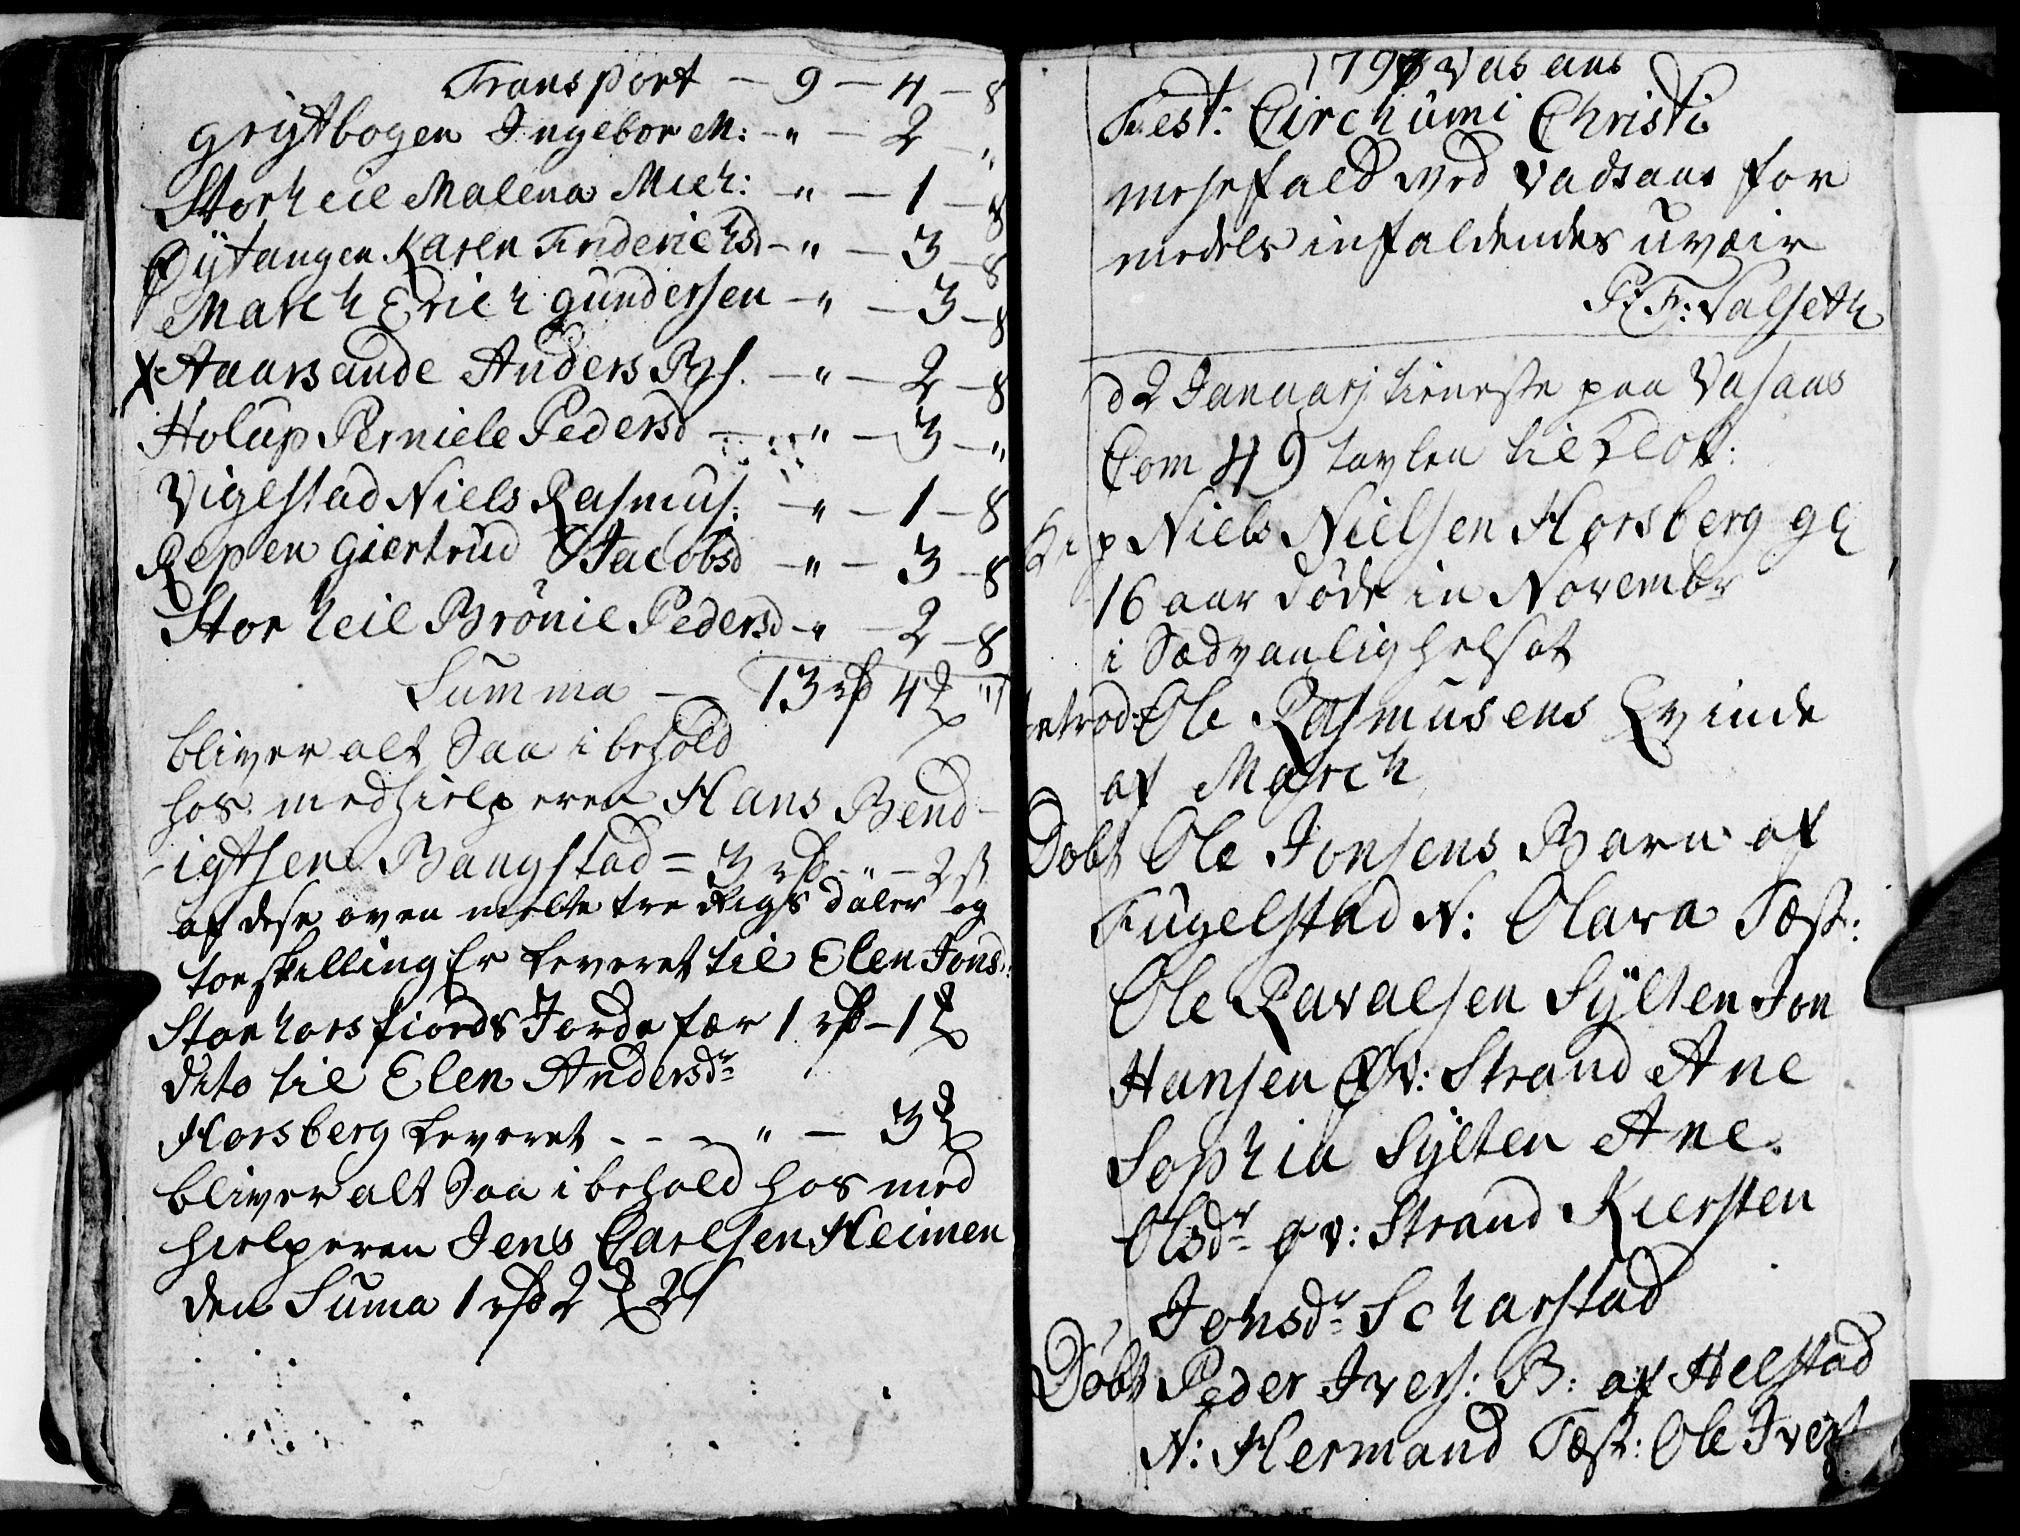 Transport - 9 - 4 - 8
grigtbogen Ingebor M: - " - 2 - "
Storheil Malena Mich: - " - 1 - 8
Øÿtangen Karen Friderichsd - " - 3 - 8
March Erich gundersen - " - 3 - 8
x Aaarsande Anders - " - 2 - 8
Holup Perniele Pedersd - " - 3 - "
Vigestad Niels Rasmus: - " - 1 - 8
Repen giertrud Jacobsd - " - 3 - 8
Storheil Brönie Pedersd - " - 2 - 8
Summa - 13 rd 4 "
bliver alt Saa i behold
hos medhielperen Hans Bend-
-igtsen Bangstad = 3 rd - " - 2 s
af dese oven melte tre Rigs daler og
toe skilling Er Leveret til Elen Jons:
Storhorsfiords Jorde fær 1 rd - 1
dito til Elen Andersdr
Horsberg Leveret - - - " - 3
bliver alt Saa i behold hos med
hielperen Jens Carlsen Heimen
den Suma 1 rd 2 2 s
179 Vasaas
Fest: Circhumi Christi
mesefald ved Vadsaas for
medels infaldendes uveir
P: F: Valseth
d 2 Januarj tieneste paa Vasaas
Com 49 tavlen til
Niels Nielsen Horsberg gl
16 aar døde in Novembr
i Sædvanlig helsot
introd: Ole Rasmusens Qvinde
af March
Döbt Ole Jonsens Barn af
Fugelstad N: Olava Tæst:
Ole Pavalsen Sÿlten Jon
Hansen Øv: Strand Ane
Sophia Sÿlten Ane
Olsdr øv: Strand Kiersten
Jonsdr Scharstad
Döbt Peder Ivers: B: af Helstad
N: Hermand Tæst: Ole Ivers